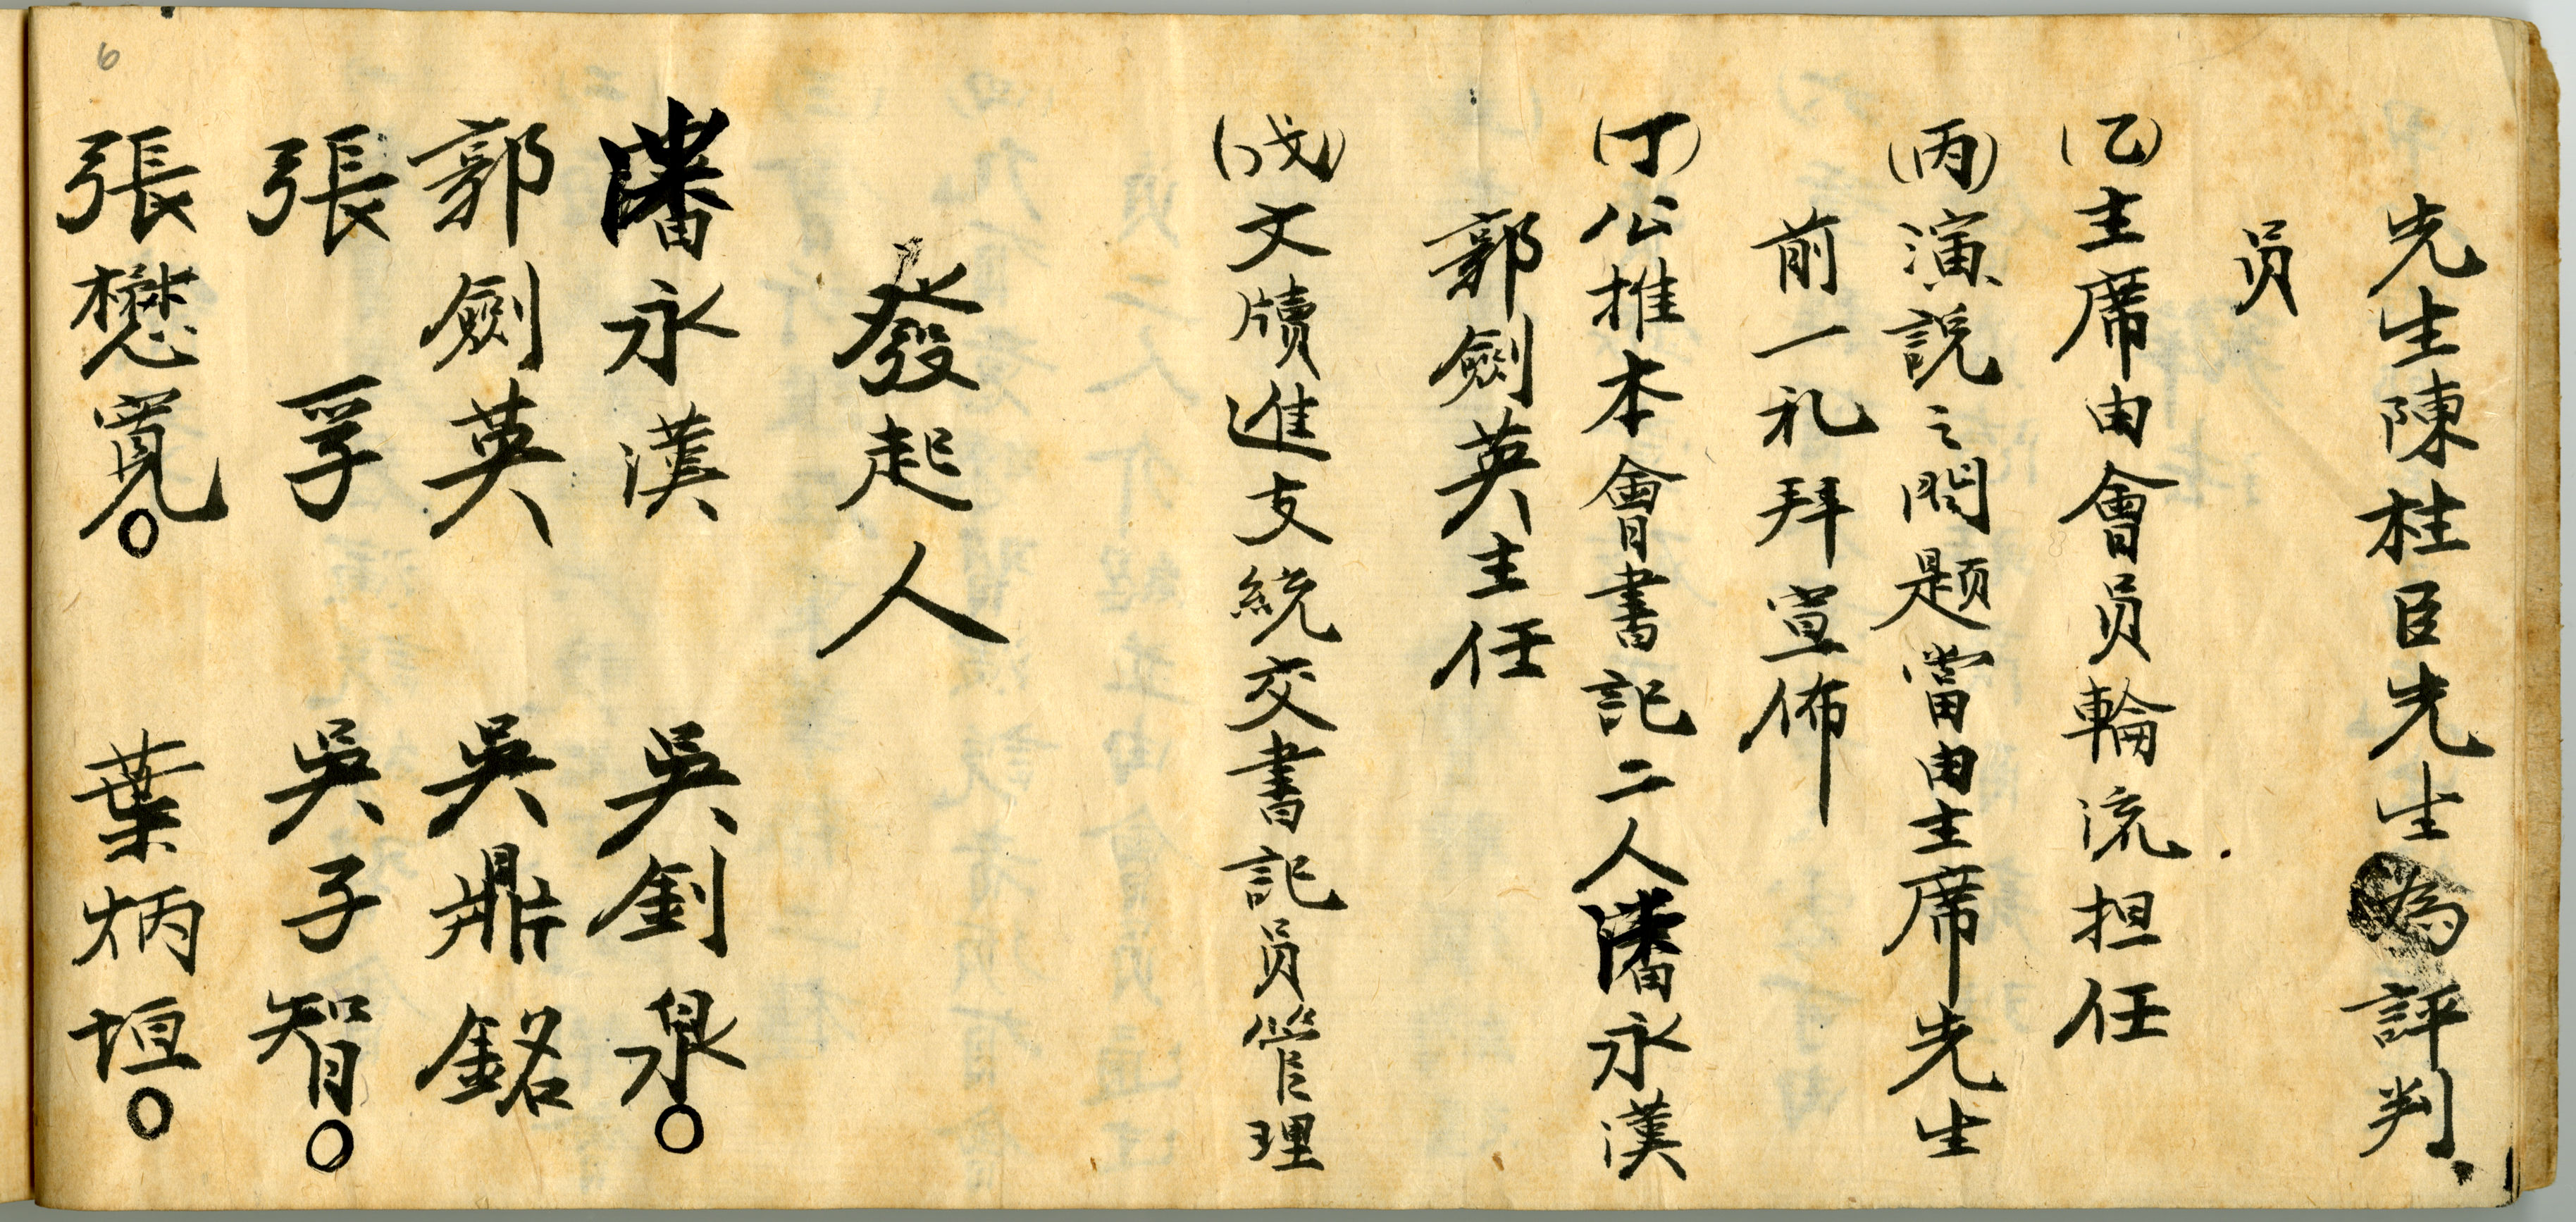 先生陳桂臣先生為評判
员
(乙)主席由會员輪流担任
(丙)演説之問题當由主席先生
前一礼拜宣佈
(丁)公推本會書記二人潘永漢
郭劍英主任
(戊)文牍進支統交書記员管理
發起人
潘永漢 吳釗泉○
郭劍英 吳鼎銘
張孚 吳子智○
張懋寬○ 葉炳垣○
6